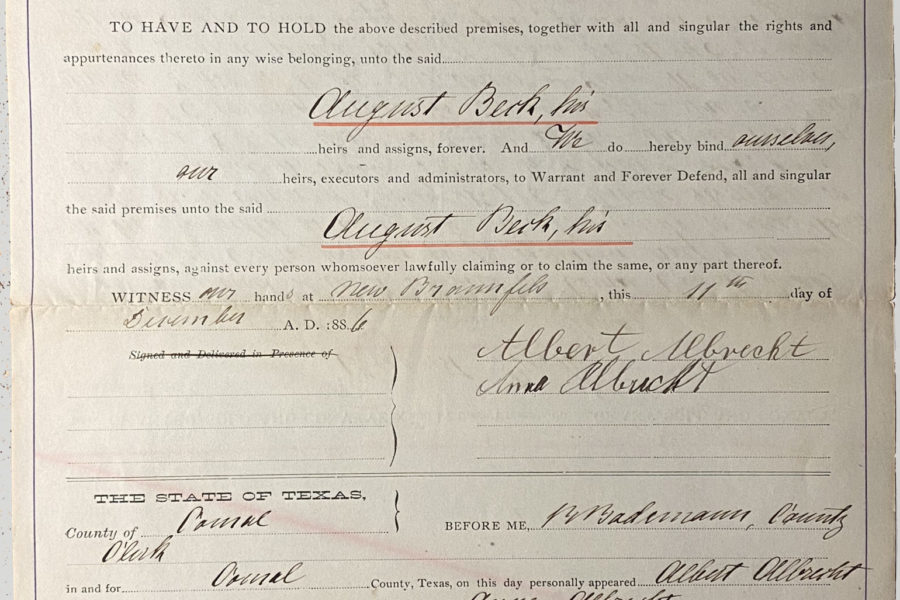 TO HAVE AND TO HOLD the above described premises, together with all and singular the rights and
appurtenances thereto in any wise belonging, unto the said
August Beck, his
heirs and assigns, forever. And We do hereby bind ourselves,
our heirs, executors and administrators, to Warrant and Forever Defend, all and singular
the said premises unto the said
August Beck, his
heirs and assigns, against every person whomsoever lawfully claiming or to claim the same, or any part thereof.
WITNESS our hands at New Braunfels, this 11th day of
December A. D. 1886
Signed and Delivered in Presence of
Albert Albrecht
Anna Albrecht
THE STATE OF TEXAS,
County of Comal
BEFORE ME, Bodemann, County
Clerk
in and for Comal County, Texas, on this day personally appeared Albert Albrecht
Anna Albrecht